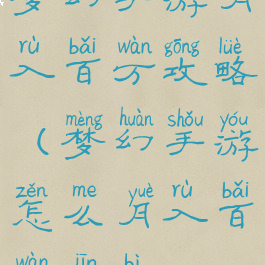 rù bǎi wàn gōng lüè
入百万攻略
mèng huàn shǒu yóu
（梦幻手游
zěn me yuè rù bǎi
怎么月入百
wàn jīn bì